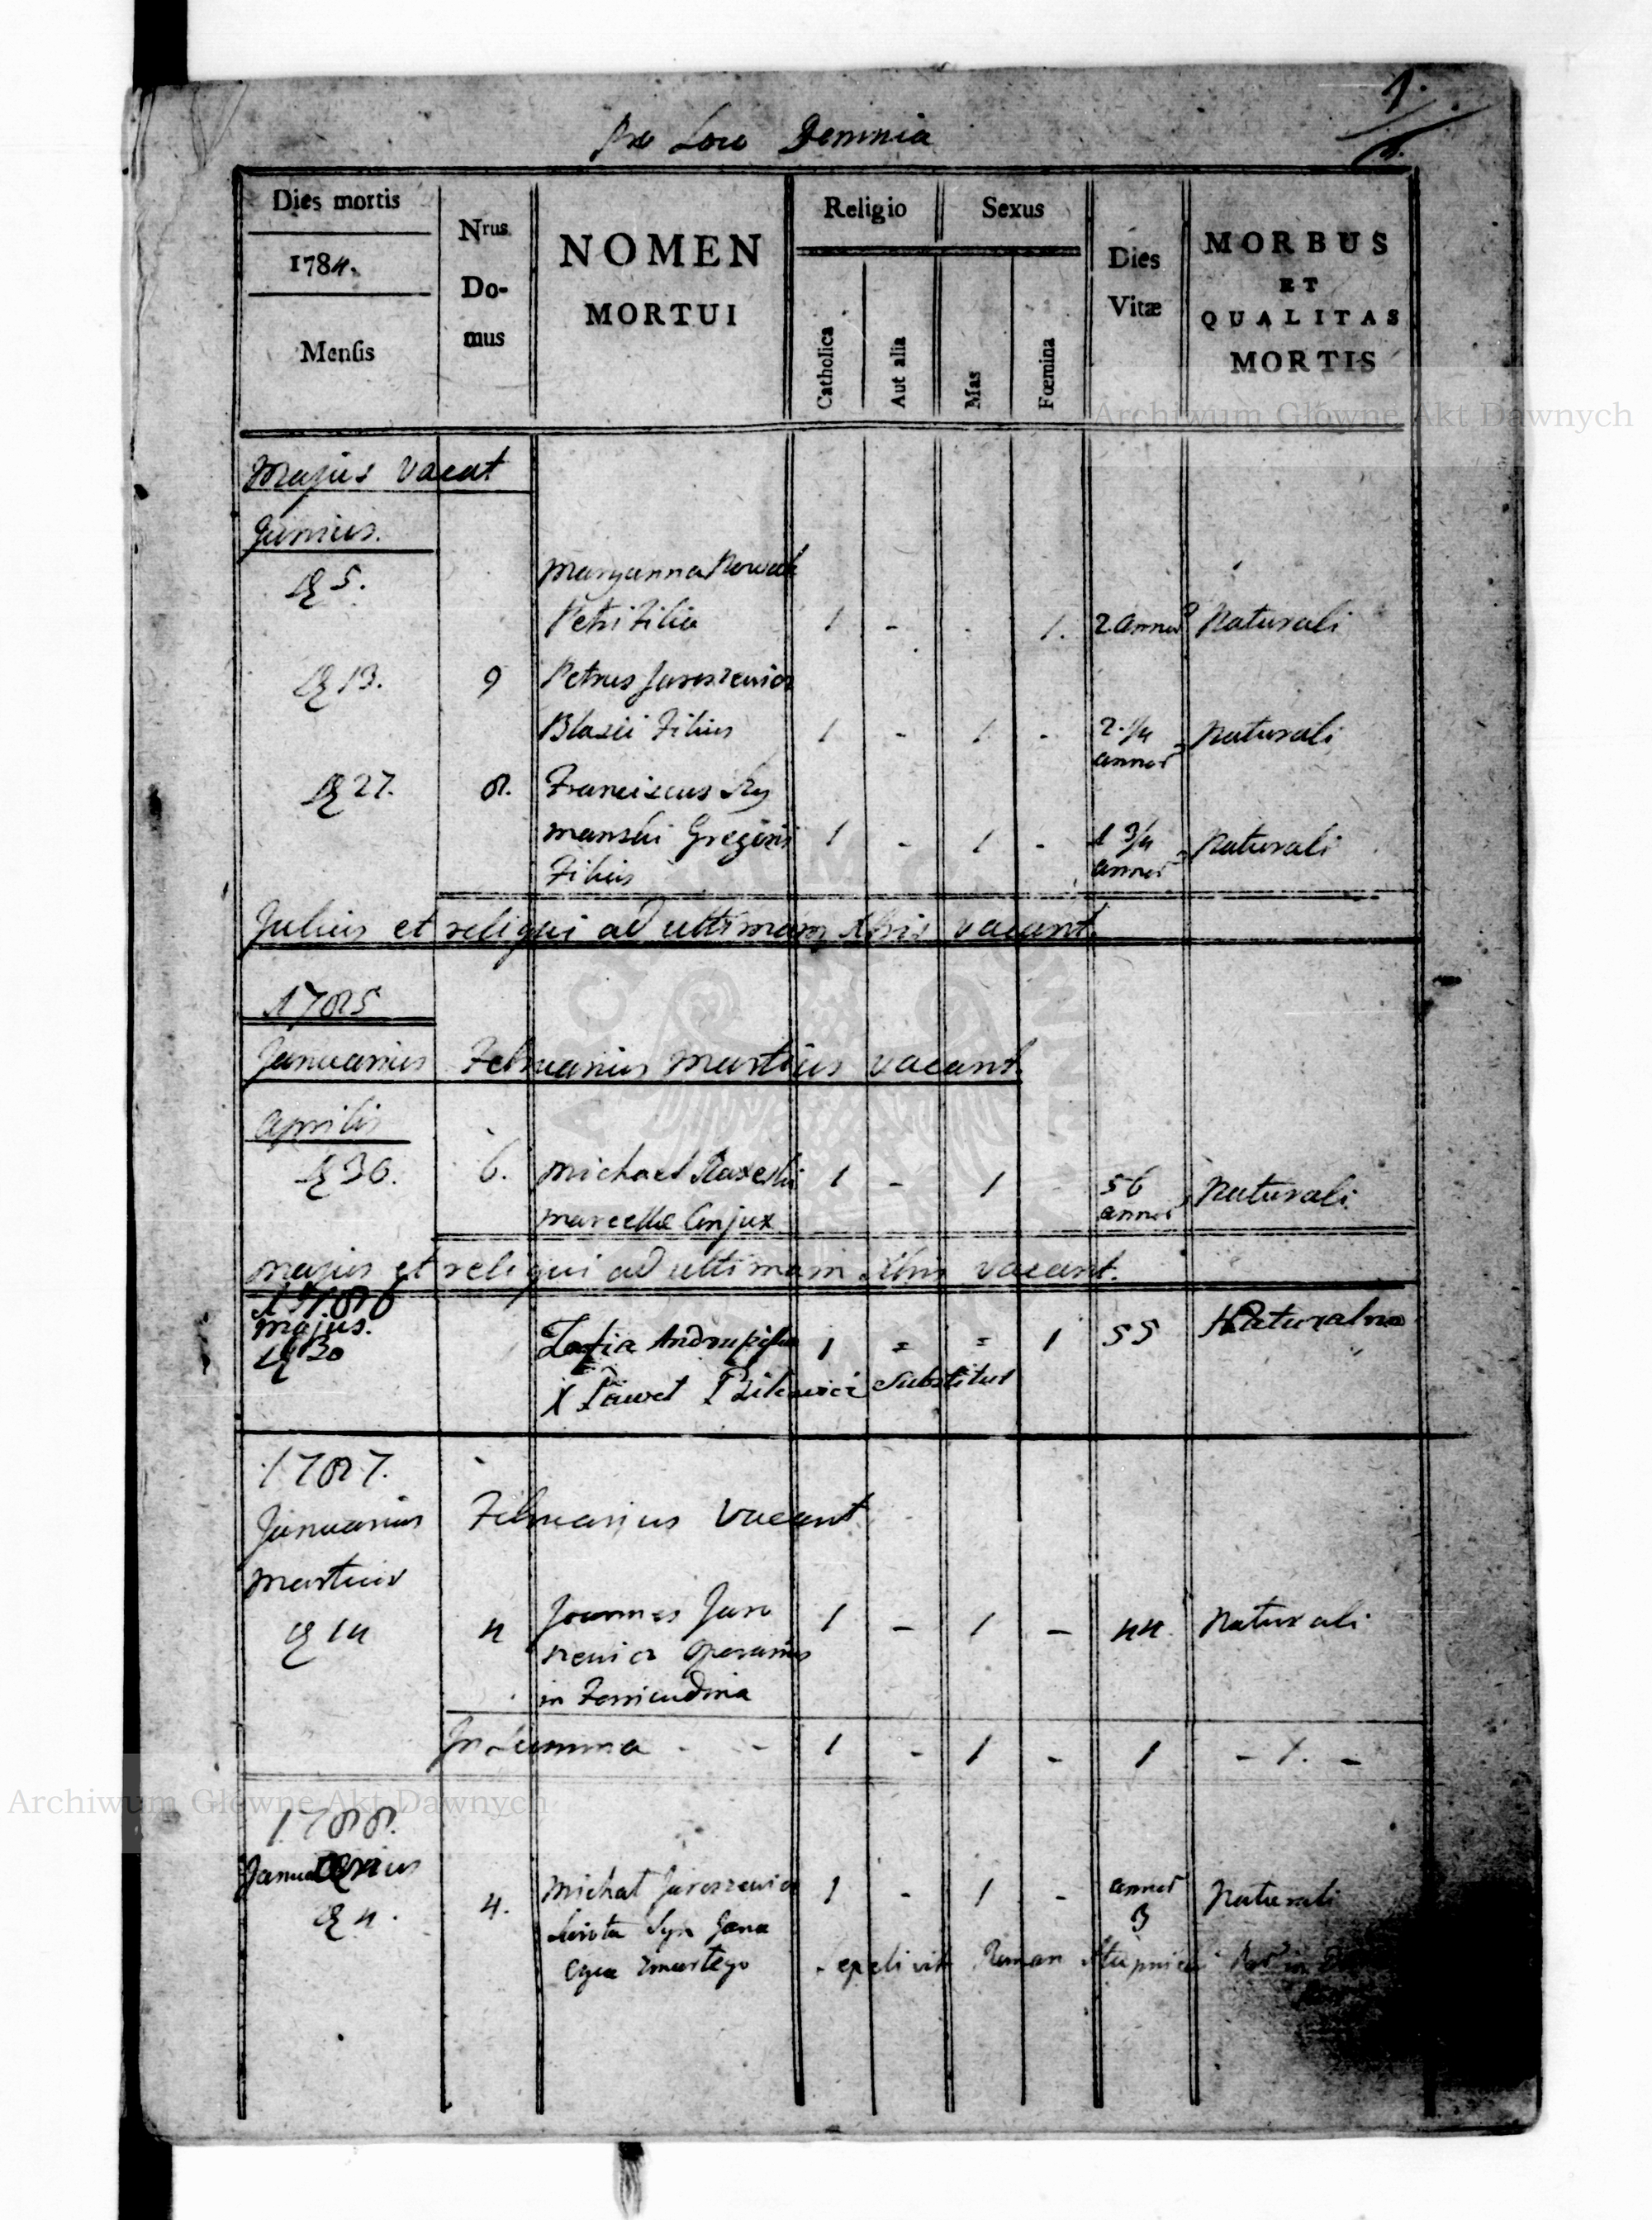 1.
Pro Loco Demnia
Dies mortis
1784.
Mensis
Nrus
Do-
mus
NOMEN
MORTUI
Religio
Catholica
Aut alia
Sexus
Mas
Fœmina
Dies
Vitæ
MORBUS
ET
QUALITAS
MORTIS
Archiwum Główne Akt Dawnych
Majus vacat
Junius.
5. Maryanna Nowak
Petri Filia 1 - . 1. 2 annor Naturali
13. 9 Petrus Jaroszewicz
Blasii Filius 1 - 1 - 2 1/4 Naturali
annor
27. 8. Franciscus Szy
manski Gregorii 1 - 1 - 1 3/4 Naturali
Filius annor
Julius et reliqui ad ultimam Xbris vacant.
1785
Januarius Februarius Martius vacant.
Aprilis
30. 6. Michael 1 - 1 56 Naturali.
Marcellæ Conjux annor
Majus et reliqui ad ultimam Xbris vacant.
1786
Majus.
30 Zofia 1 = = 1 55 Naturalna
X Paweł Substitut
1787.
Januarius Februarius vacant
Martius
14 4 Joannes Jaro 1 - 1 - 44. Naturali
szewicz Operarius
in
In Summa - - 1 - 1 - 1 - 1. -
Archiwum Główne Akt Dawnych
1788.
Januarius
4. 4. Michał Jaroszewicz 1 - 1 - annor Naturali
Sirota Syn Jana 3
Oyca Zmarłego sepelivit Roman Stupnicki